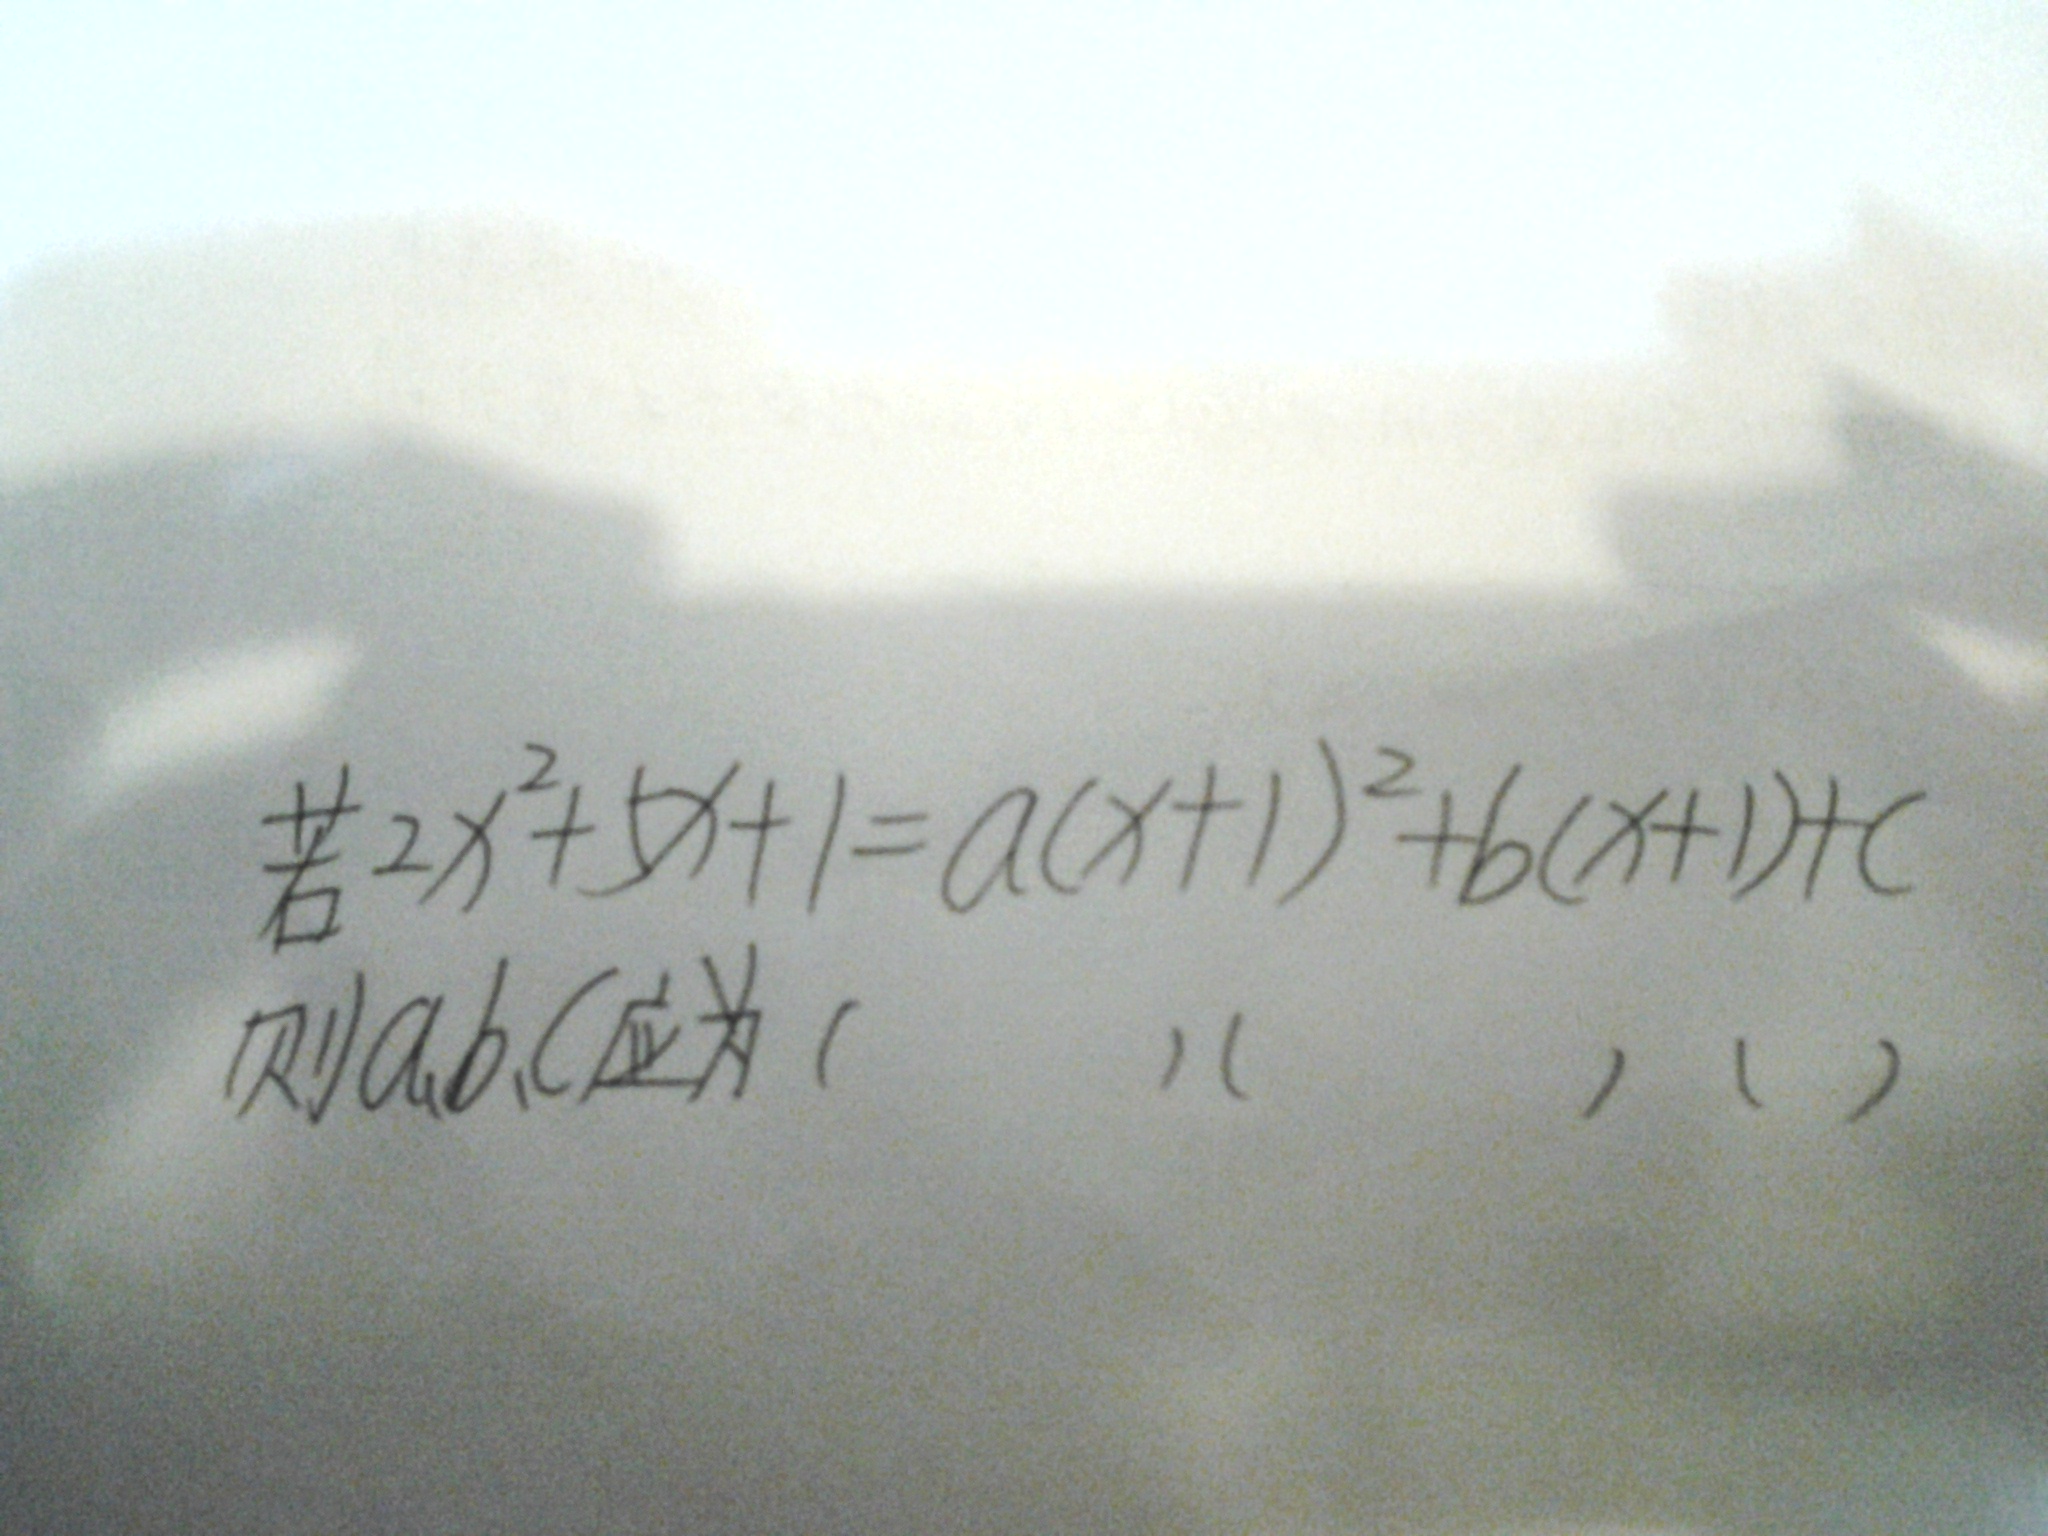 若2x²+5x+1=a(x+1)²+b(x+1)+c
则a、b、c应为( )( ),( )